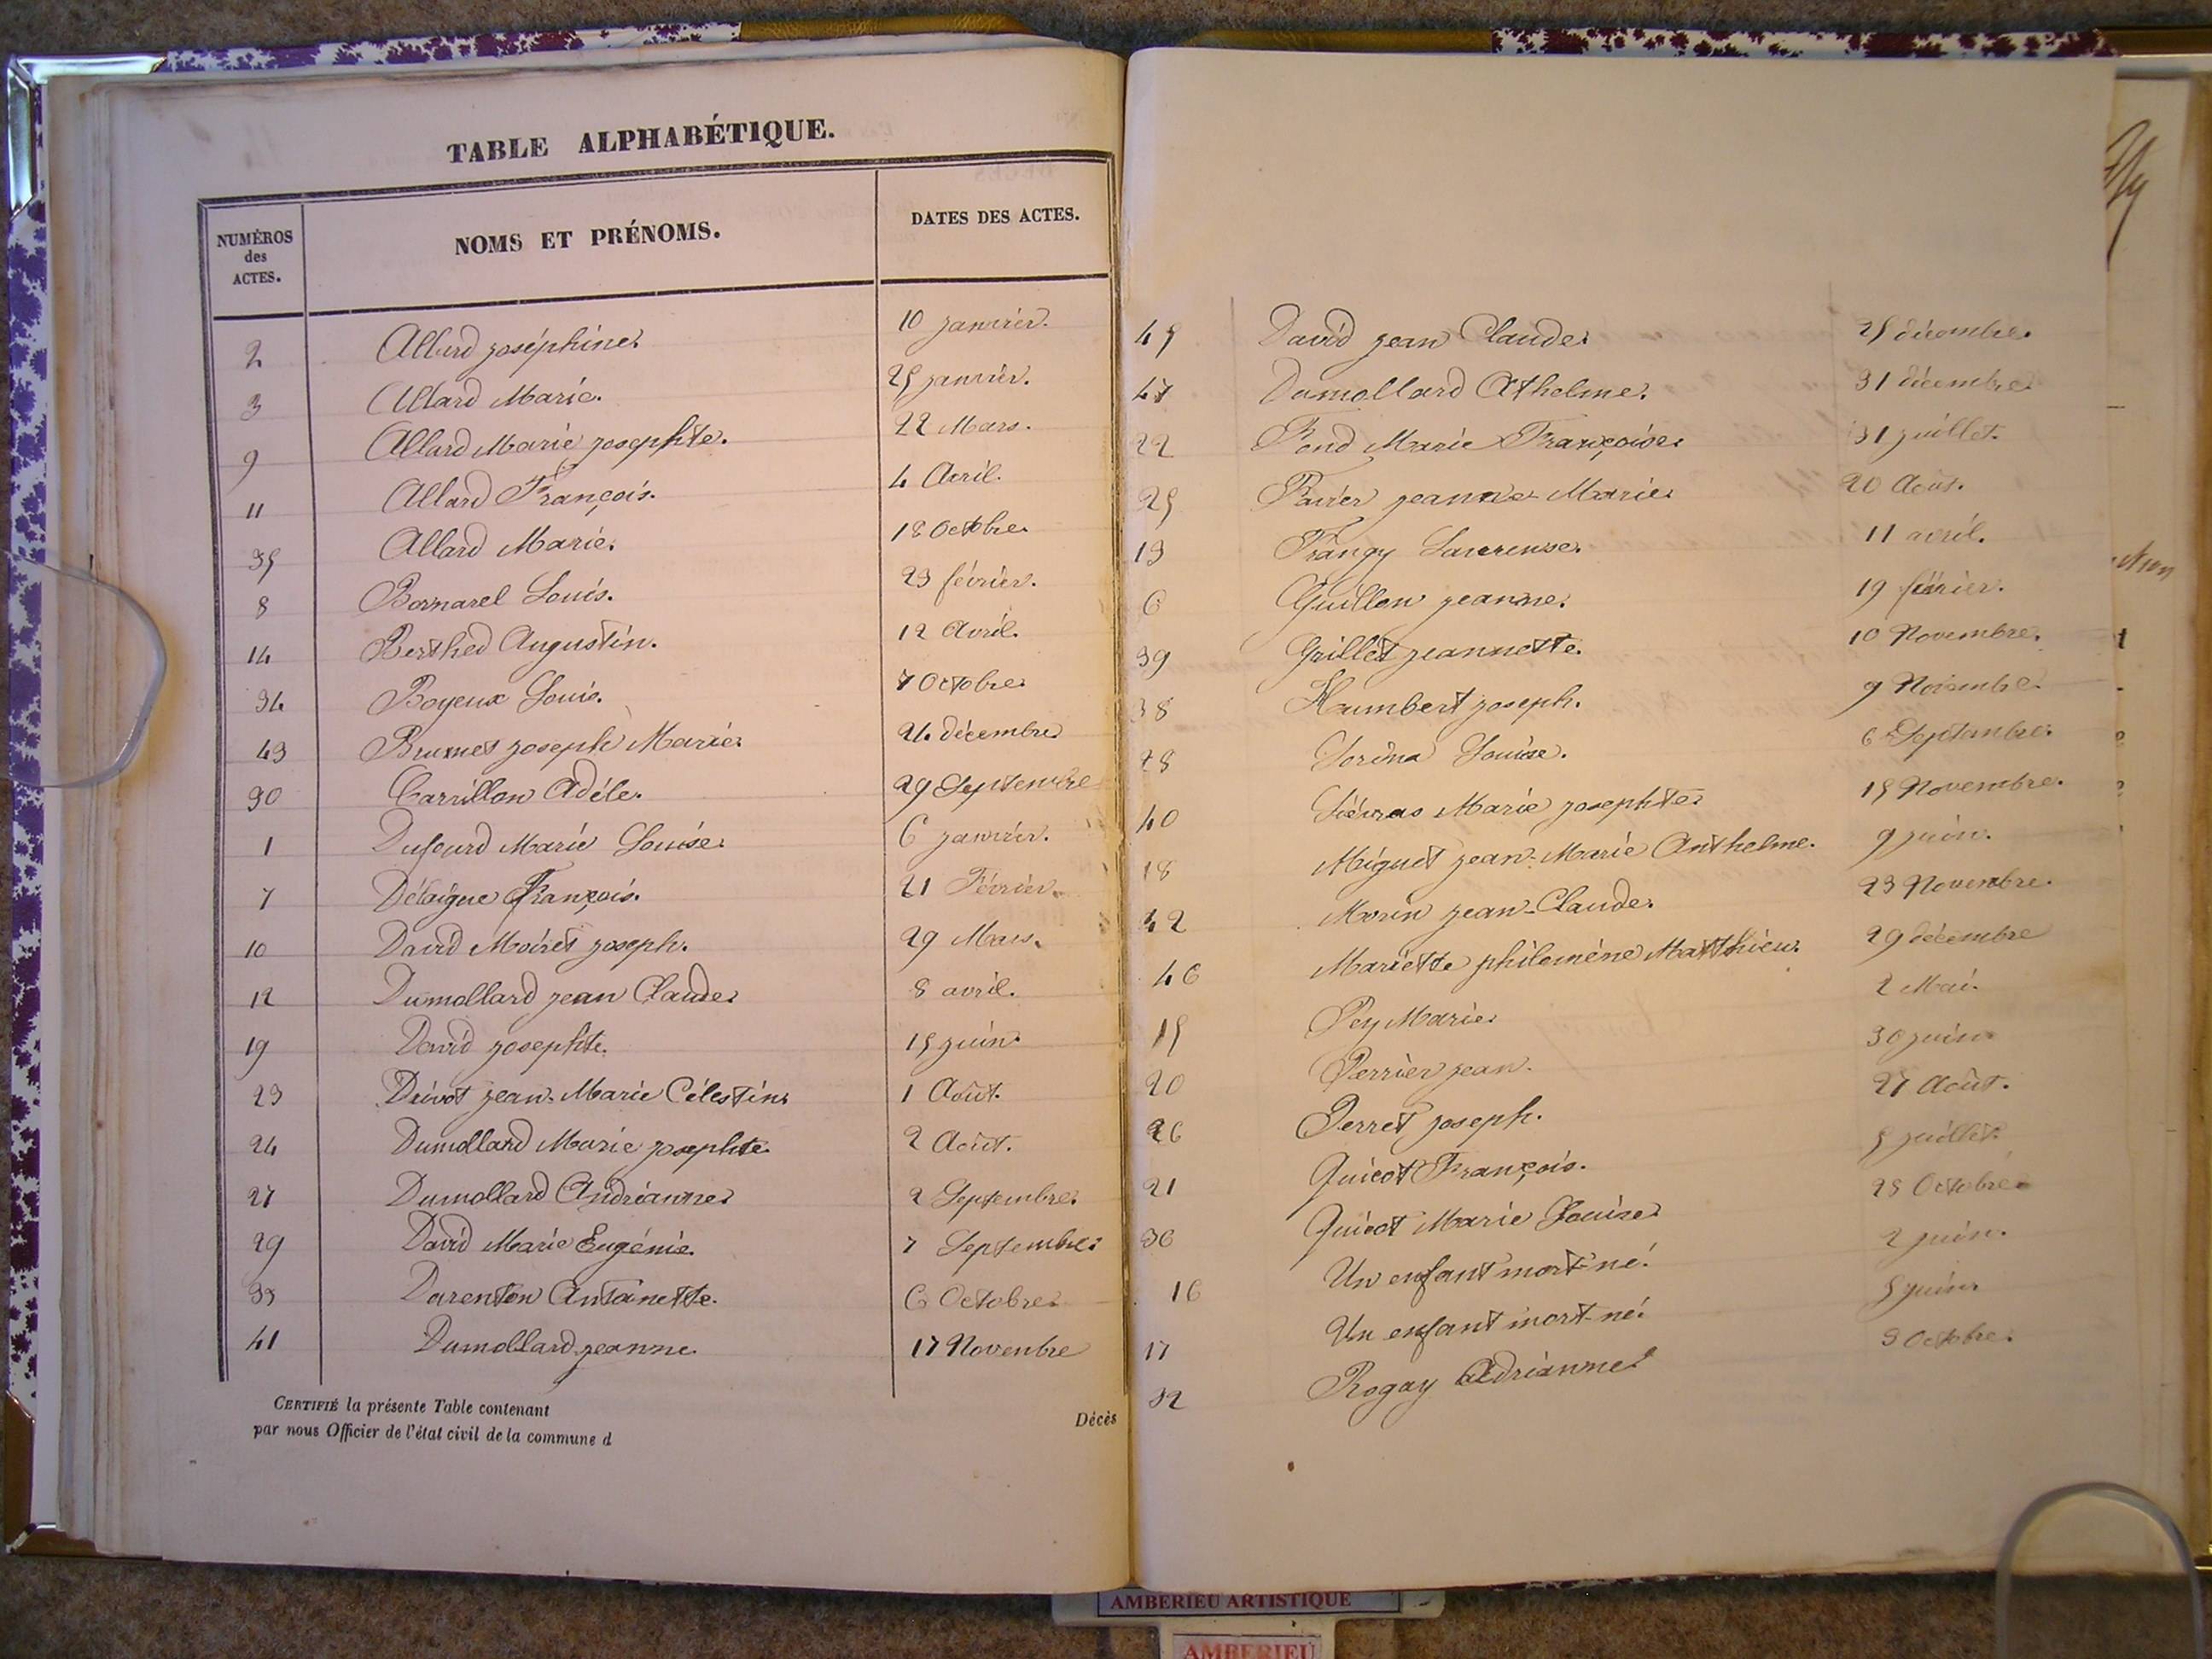 TABLE ALPHABÉTIQUE.
NUMÉROS des ACTES. NOMS ET PRÉNOMS. DATES DES ACTES.
2 Allard joséphine. 10 janvier.
3 Allard Marie. 25 janvier.
9 Allard Marie josephte. 22 Mars.
11 Allard François. 4 Avril.
35 Allard Marie. 18 Octobre
8 Bornarel Louis. 23 février.
14 Berthed Augustin. 12 Avril.
34 Boyeux Louis. 7 Octobre
43 Brumet joseph Marie. 24 décembre
30 Carrillon Adéle. 29 Septembre
1 Dufourd Marie Louise. 6 janvier.
7 Délaigue François. 21 Février.
10 David Moiret joseph. 29 Mars.
12 Dumollard jean Claude. 8 avril.
19 David josephte. 15 juin.
23 Drivot jean-Marie Célestin. 1 Août.
24 Dumollard Marie josephte. 2 Août.
27 Dumollard Andrianne. 2 Septembre.
29 David Marie Eugénie. 7 Septembre.
33 Darenton Antoinette. 6 Octobre.
41 Dumollard jeanne. 17 Novembre
CERTIFIÉ la présente Table contenant Décès
par nous Officier de l'état civil de la commune d
45 David jean Claude. 25 décembre.
47 Dumollard Athelme. 31 décembre.
22 Fond Marie Françoise. 31 juillet.
25 jeanne-Marie. 20 Août.
13 Frangy Laurense. 11 avril.
6 Guillon jeanne. 19 février.
39 Grillet jeannette. 10 Novembre.
38 Humbert joseph. 9 Novembre.
28 Lorina Louise. 6 Septembre.
40 Liévras Marie josephte. 15 Novembre.
18 Miguet jean-Marie Anthelme. 9 juin.
42 Morin jean-Claude. 23 Novembre.
46 Mariette philoméne Matthieu. 29 décembre
15 Pey Marie. 2 Mai.
20 Perrier jean. 30 juin.
26 Perret joseph. 27 Août.
21 Quicot François. 5 juillet.
36 Quicot Marie Louise. 25 Octobre.
16 Un enfant mort-né. 2 juin.
17 Un enfant mort-né. 5 juin.
32 Rogay Adrianne. 3 Octobre.
AMBERIEU ARTISTIQUE
AMBERIEU